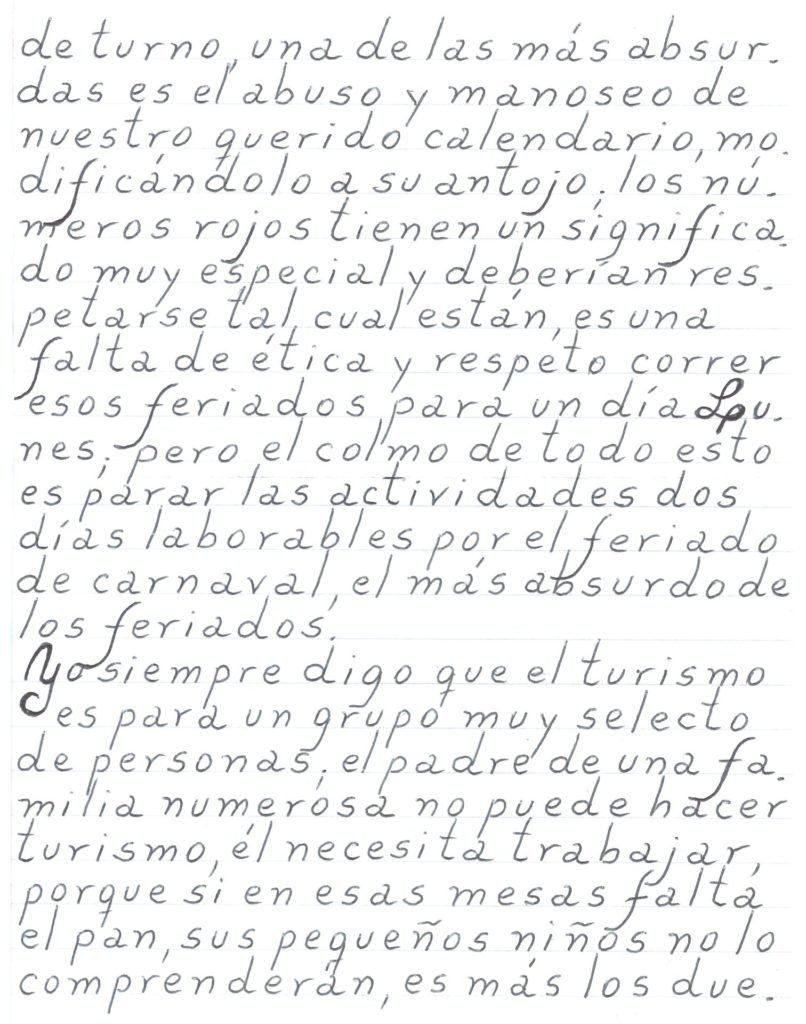 de turno, una de las más absur-
das es el abuso y manoseo de
nuestro querido calendario, mo-
dificándolo a su antojo; los nú-
meros rojos tienen un significa-
do muy especial y deberían res-
petarse tal cual están, es una
falta de ética y respeto correr
esos feriados para un día Lu-
nes; pero el colmo de todo esto
es parar las actividades dos
días laborables por el feriado
de carnaval, el más absurdo de
los feriados.
Yo siempre digo que el turismo
es para un grupo muy selecto
de personas; el padre de una fa-
milia numerosa no puede hacer
turismo, él necesita trabajar,
porque si en esas mesas falta
el pan, sus pequeños niños no lo
comprenderán, es más los due-